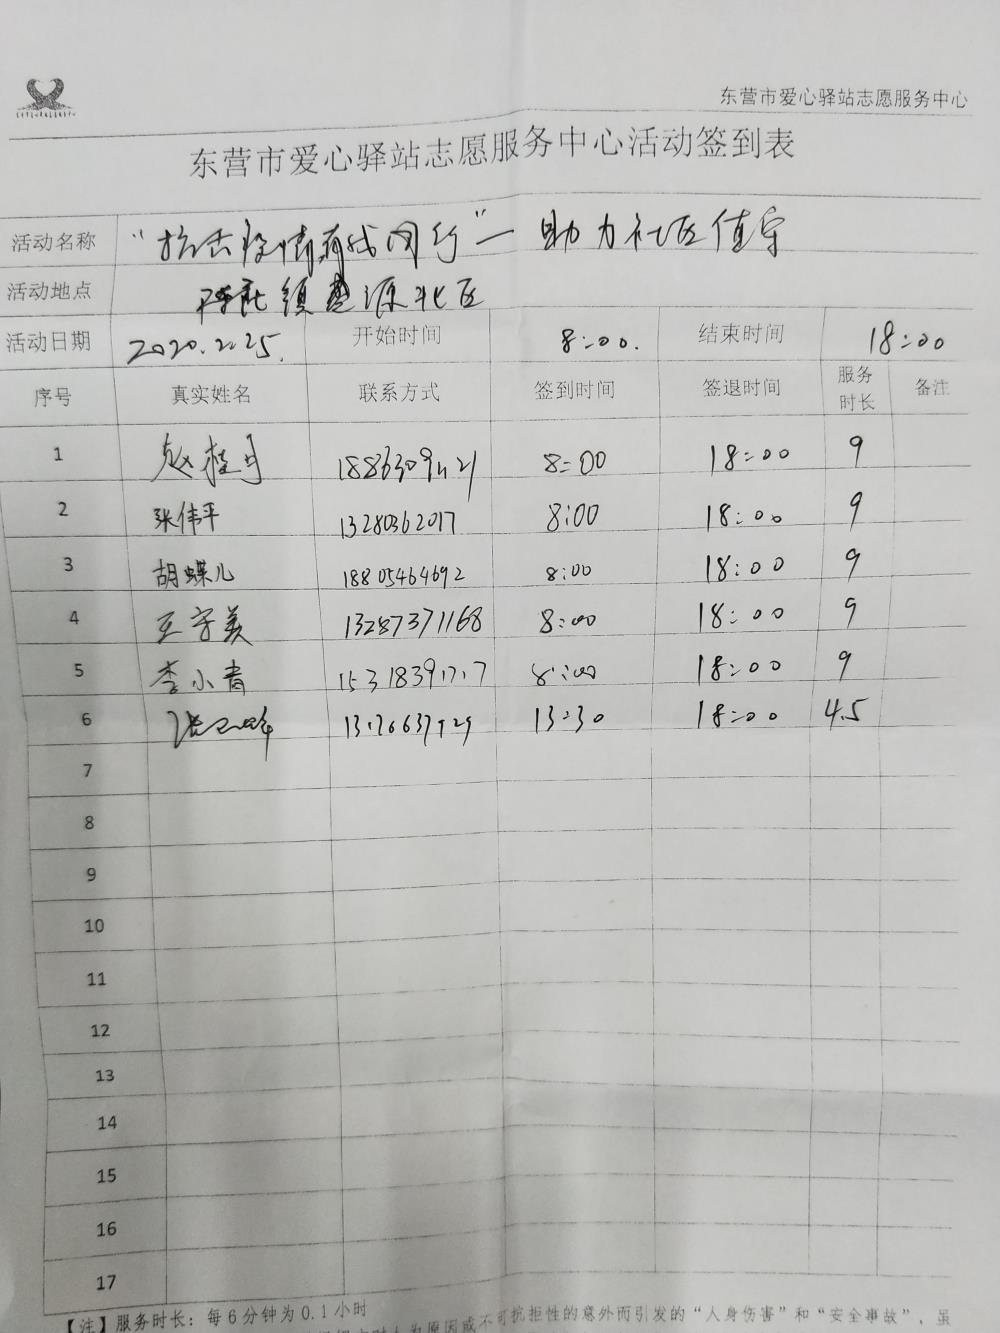 东营市爱心驿站志愿服务中心
东营市爱心驿站志愿服务中心活动签到表
活动名称 “抗击疫情有我同行”—助力社区值守
活动地点 源北区
活动日期 2020.2.25. 开始时间 8:00. 结束时间 18:00
序号 真实姓名 联系方式 签到时间 签退时间 服务时长 备注
1 赵桂月 8:00 18:00 9
2 张伟平 13280362017 8:00 18:00 9
3 胡蝶儿 18805464692 8:00 18:00 9
4 王守美 13287371168 8:00 18:00 9
5 李小青 8:00 18:00 9
6 13:30 18:00 4.5
7
8
9
10
11
12
13
14
15
16
17
【注】服务时长：每6分钟为0.1小时
为原因或不可抗拒性的意外而引发的“人身伤害”和“安全事故”，虽